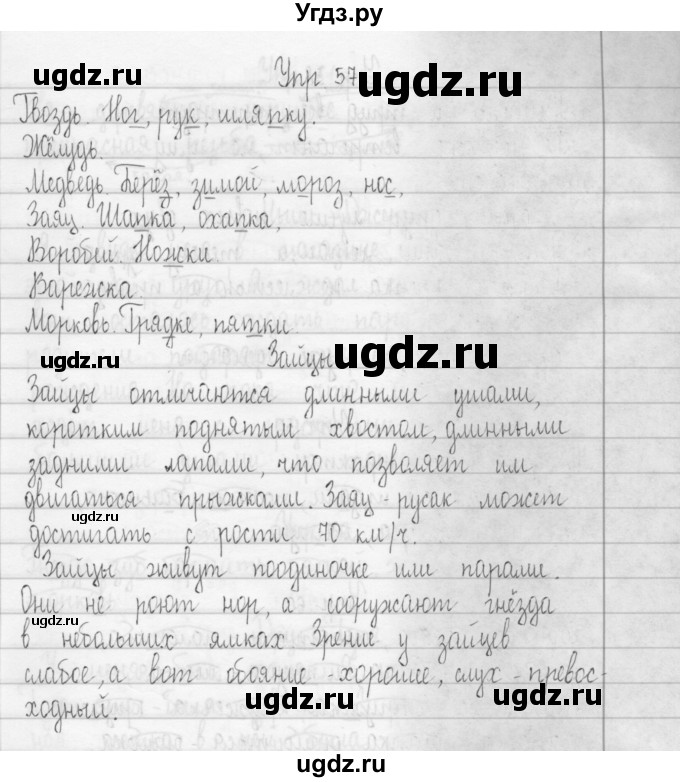 Угдз.ру
ugdz.ru Упр 57 ugdz.ru
Гвоздь. Ног, рук, шляпку.
Жёлудь.
Медведь. Берёз, зимой, мороз, нос,
Заяц. Шапка, охапка,
Воробей. Ножки
Варежка.
Морковь. Грядке, пятки.
ugdz.ru Зайцы ugdz.ru
Зайцы отличаются длинными ушами,
коротким поднятым хвостом, длинными
задними лапами, что позволяет им
двигаться прыжками. Заяц-русак может
ugdz.ru
достигать с рости 70 км/ч.
Зайцы живут поодиночке или парами.
Они не роют нор, а сооружают гнёзда
ugdz.ru
в небольших ямках Зрение у зайцев
слабое, а вот обояние - хорошее, слух - превос-
ходный.
ugdz.ru ugdz.ru
ugdz.ru